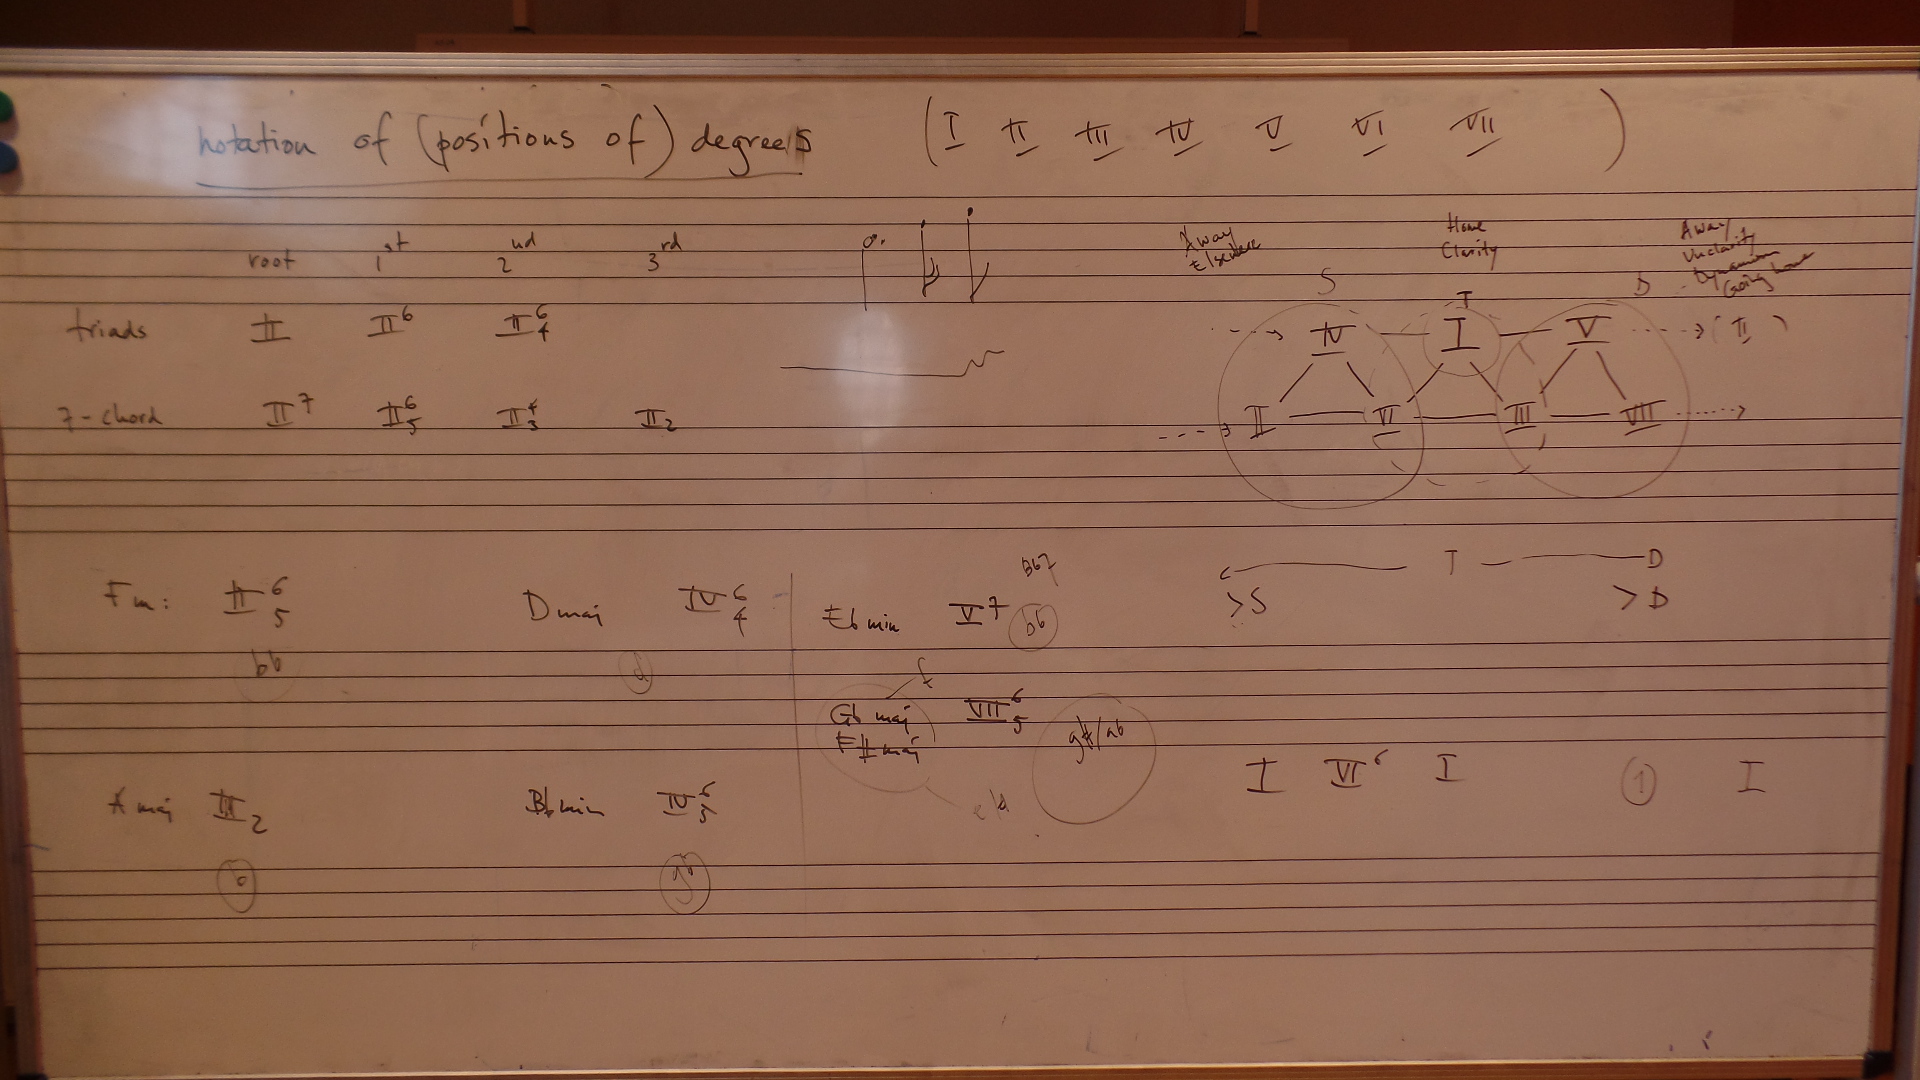 notation of (positions of) degrees (I II III IV V VI VII)
root 1st 2nd 3rd
triads II II6 II64
7-chord II7 II65 II43 II2
Away
Elsewhere
Home
Clarity
Away
Unclarity
Dynamism
Going home
S T D
IV I V (II)
II VI III VII
T D
>S >D
Fm: II65
bb
Dmaj IV64
d
Eb min V7
Bb7
bb
f
Gb maj VII65
F# maj
g#/ab
I VI6 I 1 I
A maj III2
b
Bb min IV65
gb